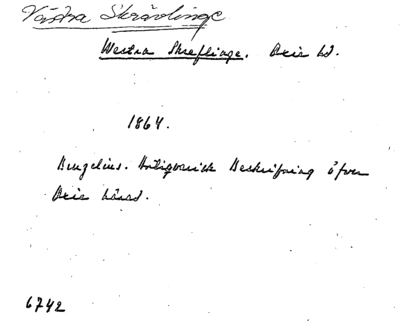 Västra Skrävlinge
Westra Skreflinge. Oxie hd.
1864.
Bengelius. Antiqvarisk Beskrifning öfver
Oxie härad.
6742